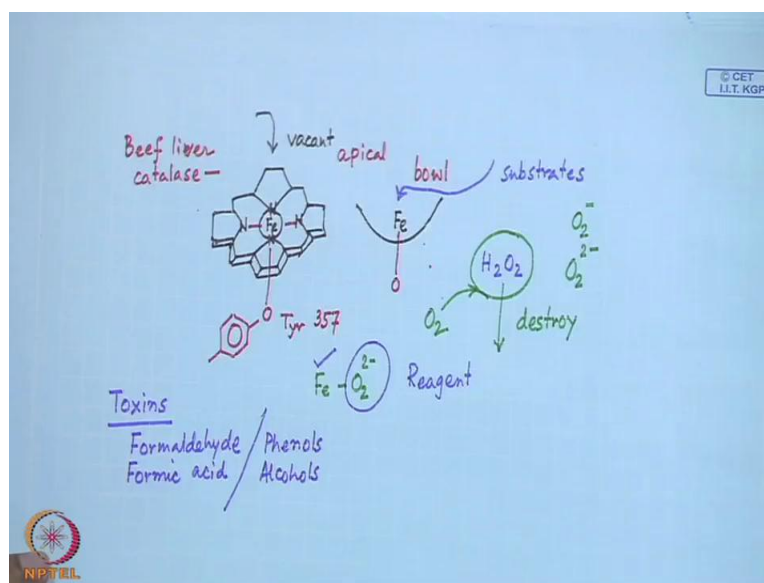 © CET
I.I.T. KGP
Beef liver
catalase –
vacant
apical
bowl
substrates
N Fe N
N
Fe
O
O
Tyr 357
H2O2
O2
destroy
O2-
O2 2-
Fe - O2 2- Reagent
Toxins
Formaldehyde / Phenols
Formic acid / Alcohols
NPTEL